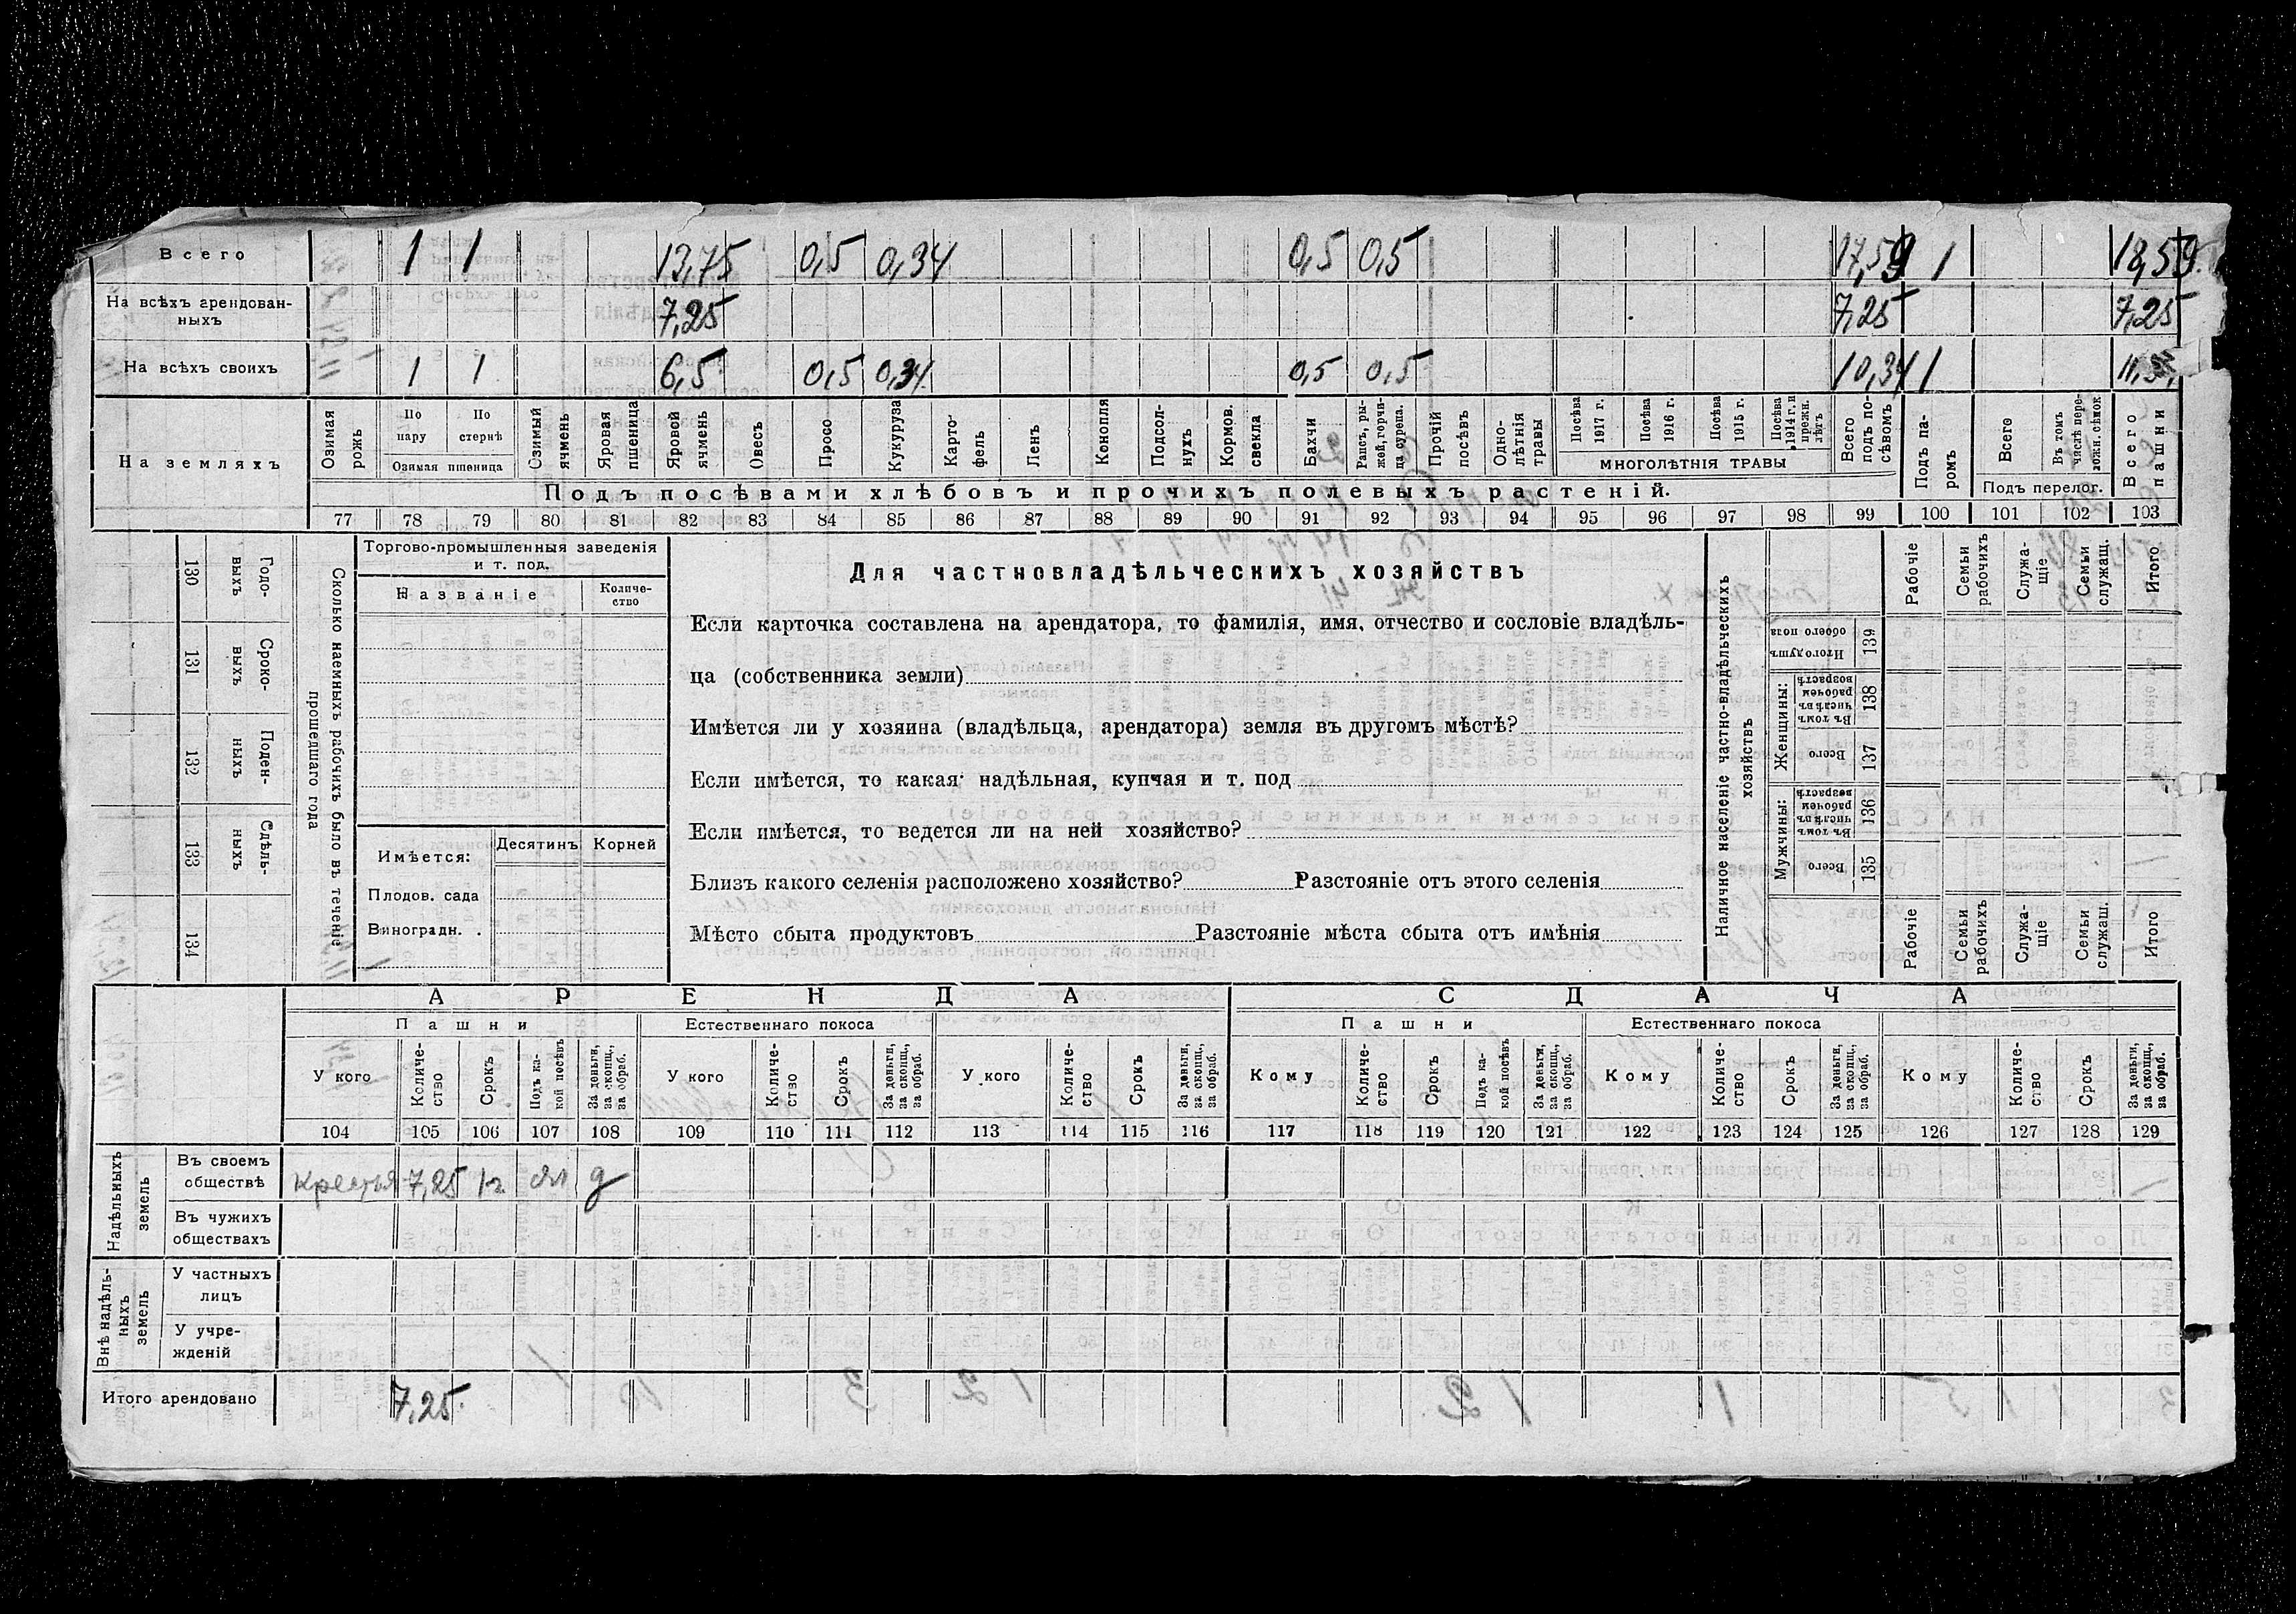 Всего 1 1 13,75 0,5 0,34 0,5 0,5 17,59 1 18,59
На всѣхъ арендован-
ныхъ 7,25 7,25 7,25
На всѣхъ своихъ 1 1 6,5 0,5 0,34 0,5 0,5 10,34 1
На земляхъ
Озимая рожь
По пару
По стернѣ
Озимая пшеница
Озимый ячмень
Яровая пшеница
Яровой ячмень
Овесъ
Просо
Кукуруза
Карто-
фель
Ленъ
Конопля
Подсол-
нухъ
Кормов. свекла
Бахчи
Рапсъ, ры-
жей, горчи-
ца сурепа.
Прочій посѣвъ
Одно-
лѣтнія травы
Посѣва 1917 г.
Посѣва 1916 г.
Посѣва 1915 г.
Посѣва 1914 г. и прежн. лѣтъ
МНОГОЛѢТНІЯ ТРАВЫ
Всего подъ по-
сѣвомъ
Подъ па-
ромъ
Всего
Въ томъ числѣ пере-
ложн. сѣнок.
Подъ перелог.
Всего пашни
Подъ посѣвами хлѣбовъ и прочихъ полевыхъ растеній.
77 78 79 80 81 82 83 84 85 86 87 88 89 90 91 92 93 94 95 96 97 98 99 100 101 102 103
130 Годо-
выхъ
131 Сроко-
выхъ
132 Поден-
ныхъ
133 Сдѣль-
ныхъ
134
Сколько наемныхъ рабочихъ было въ теченіе
прошедшаго года
Торгово-промышленныя заведенія
и т. под.
Названіе
Количе-
ство
Имѣется:
Десятинъ Корней
Плодов. сада
Виноградн.
Для частновладѣльческихъ хозяйствъ
Если карточка составлена на арендатора, то фамилія, имя, отчество и сословіе владѣль-
ца (собственника земли)
Имѣется ли у хозяина (владѣльца, арендатора) земля въ другомъ мѣстѣ?
Если имѣется, то какая: надѣльная, купчая и т. под
Если имѣется, то ведется ли на ней хозяйство?
Близъ какого селенія расположено хозяйство? Разстояніе отъ этого селенія
Мѣсто сбыта продуктовъ Разстояніе мѣста сбыта отъ имѣнія
Наличное населеніе частно-владѣльческихъ
хозяйствъ
Рабочіе
Семьи рабочихъ
Служа-
щіе
Семьи служащ.
Итого
Итого душъ обоего пола 139
Женщины:
Въ томъ числѣ въ рабочемъ возрастѣ 138
Всего 137
Мужчины:
Въ томъ числѣ въ рабочемъ возрастѣ 136
Всего 135
Рабочіе
Семьи рабочихъ
Служа-
щіе
Семьи служащ.
Итого
АРЕНДА СДАЧА
Пашни Естественнаго покоса Пашни Естественнаго покоса
У кого
Количе-
ство
Срокъ
Подъ ка-
кой посѣвъ
За деньги, за скопщ., за обраб.
У кого
Количе-
ство
Срокъ
За деньги, за скопщ., за обраб.
У кого
Количе-
ство
Срокъ
За деньги, за скопщ., за обраб.
Кому
Количе-
ство
Срокъ
Подъ ка-
кой посѣвъ
За деньги, за скопщ., за обраб.
Кому
Количе-
ство
Срокъ
За деньги, за скопщ., за обраб.
Кому
Количе-
ство
Срокъ
За деньги, за скопщ., за обраб.
104 105 106 107 108 109 110 111 112 113 114 115 116 117 118 119 120 121 122 123 124 125 126 127 128 129
Надѣльныхъ земель
Въ своемъ
обществѣ крестья 7,25 1 г. яч д
Въ чужихъ
обществахъ
Внѣ надѣль-
ныхъ земель
У частныхъ
лицъ
У учре-
жденій
Итого арендовано 7,25